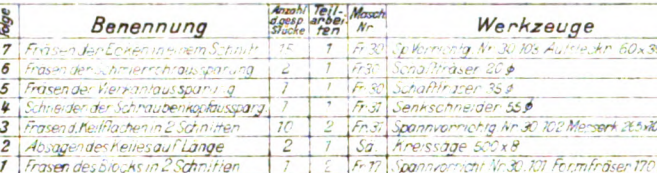 folge Benennung Anzahl d. gesp Stücke Teil-arbei-ten Masch. Nr Werkzeuge
7 Fräsen der Ecken in einem Schnitt 15 1 Fr 30 Sp.Vorrichtg Nr 30 103 60x
6 Fräsen der Schmierrohraussparung 2 1 Fr 30 Schaftfräser 20 ϕ
5 Fräsen der Vierkantaussparung 1 1 Fr 30 Schaftfräser 35 ϕ
4 Schneiden der Schraubenkopfausspарg 1 1 Fr 31 Senkschneider 55 ϕ
3 Fräsen d. Keilflächen in 2 Schnitten 10 2 Fr. 31 Spannvorrichtg Nr 30 102 Messerk
2 Absägen des Keiles auf Länge 2 1 Sa Kreissäge 500 x 8
1 Fräsen des Blocks in 2 Schnitten 1 2 Fr 17 Spannvorricht Nr 30.101 Formfräser 170